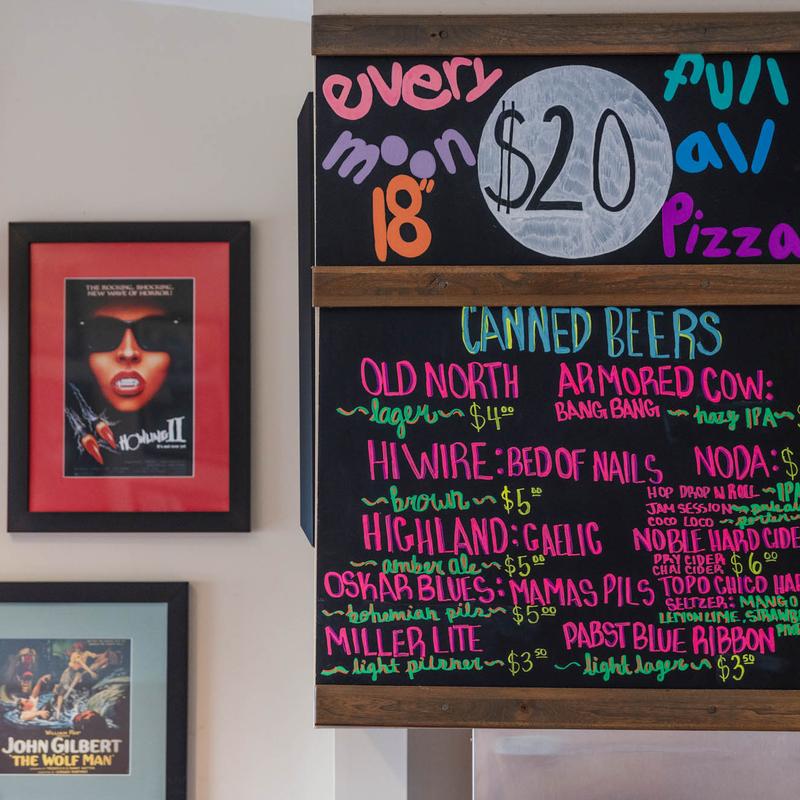 every full
moon $20 all
18" Pizza
CANNED BEERS
OLD NORTH ARMORED COW:
~lager~ $4.00 BANG BANG ~hazy IPA~ $
HI WIRE: BED OF NAILS NODA: $
~brown~ $5.00 HOP DROP N ROLL ~IPA
JAM SESSION~pale al
COCO LOCO ~porter~
HIGHLAND: GAELIC NOBLE HARD CIDE
~amber ale~ $5.00 DRY CIDER $6.00
CHAI CIDER
OSKAR BLUES: MAMAS PILS TOPO CHICO HAR
~bohemian pils~ $5.00 SELTZER: MANGO
LEMON LIME, STRAWB
MILLER LITE PABST BLUE RIBBON
~light pilsner~ $3.50 ~light lager~ $3.50
THE ROCKING, SHOCKING,
NEW WAVE OF HORROR!
HOWLING II
It's not over yet
WILLIAM FOX
JOHN GILBERT
"THE WOLF MAN"